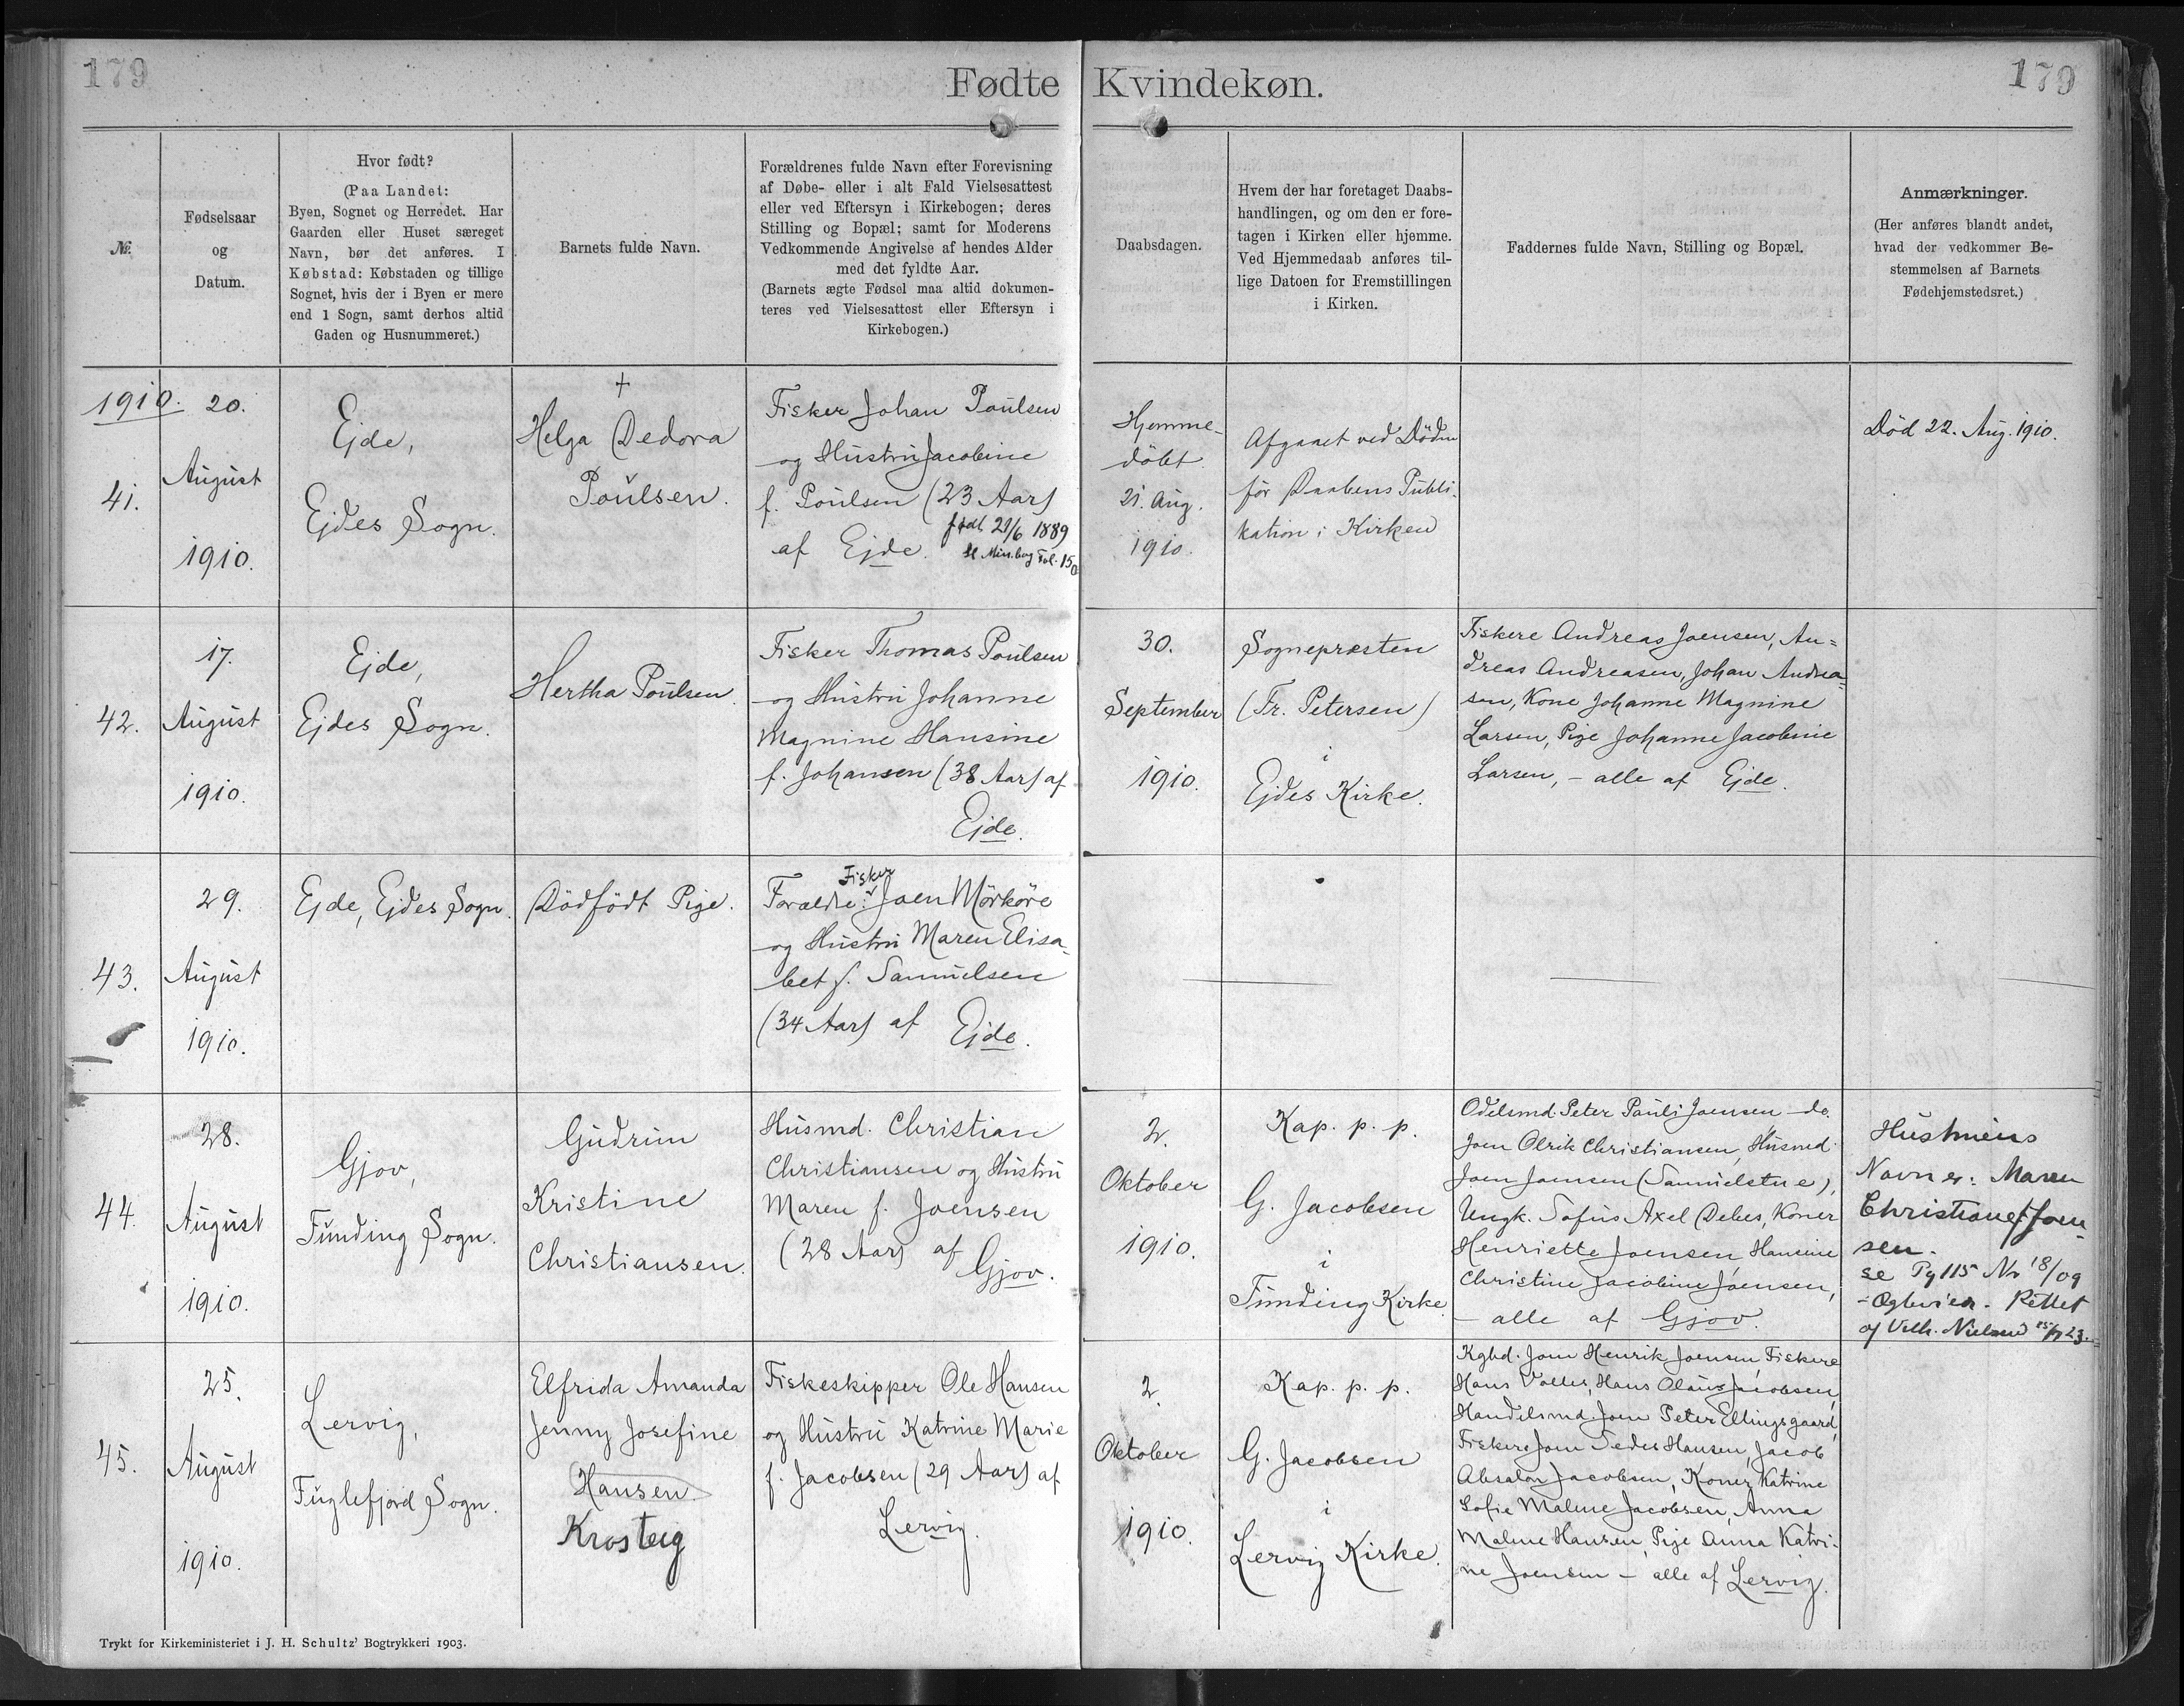 179
Fødte Kvindekøn.
179
Nr.
Fødselsaar
og
Datum.
Hvor født?
(Paa Landet:
Byen, Sognet og Herredet. Har
Gaarden eller Huset særeget
Navn, bør det anføres. I
Købstad: Købstaden og tillige
Sognet, hvis der i Byen er mere
end 1 Sogn, samt derhos altid
Gaden og Husnummeret.)
Barnets fulde Navn.
Forældrenes fulde Navn efter Forevisning
af Døbe- eller i alt Fald Vielsesattest
eller ved Eftersyn i Kirkebogen; deres
Stilling og Bopæl; samt for Moderens
Vedkommende Angivelse af hendes Alder
med det fyldte Aar.
(Barnets ægte Fødsel maa altid dokumen-
teres ved Vielsesattest eller Eftersyn i
Kirkebogen.)
Daabsdagen.
Hvem der har foretaget Daabs-
handlingen, og om den er fore-
tagen i Kirken eller hjemme.
Ved Hjemmedaab anføres til-
lige Datoen for Fremstillingen
i Kirken.
Faddernes fulde Navn, Stilling og Bopæl.
Anmærkninger.
(Her anføres blandt andet,
hvad der vedkommer Be-
stemmelsen af Barnets
Fødehjemstedsret.)
1910.
41.
20.
August
1910.
Ejde,
Ejdes Sogn.
+
Helga Dedora
Poulsen.
Fisker Johan Poulsen
og Hustru Jacobine
f. Poulsen (23 Aar)
født 21/6 1889
af Ejde.
Hjemme-
döbt
21. Aug.
1910.
Afgaaet ved Döden
för Daabens Publi-
kation i Kirken
Död 22. Aug. 1910.
42.
17.
August
1910.
Ejde,
Ejdes Sogn.
Hertha Poulsen.
Fisker Thomas Poulsen
og Hustru Johanne
Magnine Hansine
f. Johansen (38 Aar) af
Ejde.
30.
September
1910.
Sognepræsten
(Fr. Petersen)
i
Ejdes Kirke.
Fiskere Andreas Joensen, An=
dreas Andreasen, Johan Andrea=
sen, Kone Johanne Magnine
Larsen, Pige Johanne Jacobine
Larsen, - alle af Ejde.
43.
29.
August
1910.
Ejde, Ejdes Sogn.
Dödfödt Pige.
Fisker
Forældre: Joen Mörköre
og Hustru Maren Elisa-
bet f. Samuelsen
(34 Aar) af Ejde.
44.
28.
August
1910.
Gjov,
Funding Sogn.
Gudrun
Kristine
Christiansen.
Husmd. Christian
Christiansen og Hustru
Maren f. Joensen
(28 Aar) af Gjov.
2.
Oktober
1910.
Kap. p. p.
G. Jacobsen
i
Funding Kirke.
Odelsmd. Peter Pauli Joensen do.
Joen Olrik Christiansen, Husmd.
Joen Joensen (Samuelstue),
Ungk. Sofus Axel Debes, Koner
Henriette Joensen, Hansine
Christine Jacobine Joensen,
- alle af Gjov.
Hustruens
Navn er: Maren
Christiane f. Joen-
sen.
se Pg 115 Nr 18/09
- Rettet
af Vilh. Nielsen
45.
25.
August
1910.
Lervig,
Fuglefjord Sogn.
Elfrida Amanda
Jenny Josefine
Hansen
Krosteig
Fiskeskipper Ole Hansen
og Hustru Katrine Marie
f. Jacobsen (29 Aar) af
Lervig.
2.
Oktober
1910.
Kap. p. p.
G. Jacobsen
i
Lervig Kirke.
Kgbd. Joen Henrik Joensen, Fiskere
Hans Olaus Jacobsen,
Handelsmd. Joen Peter Ellingsgaard,
Fiskere Joen Hansen, Jacob
Absalon Jacobsen, Koner Katrine
Sofie Malene Jacobsen, Anna
Malene Hansen, Pige Anna Katri-
ne Joensen - alle af Lervig.
Trykt for Kirkeministeriet i J. H. Schultz' Bogtrykkeri 1903.